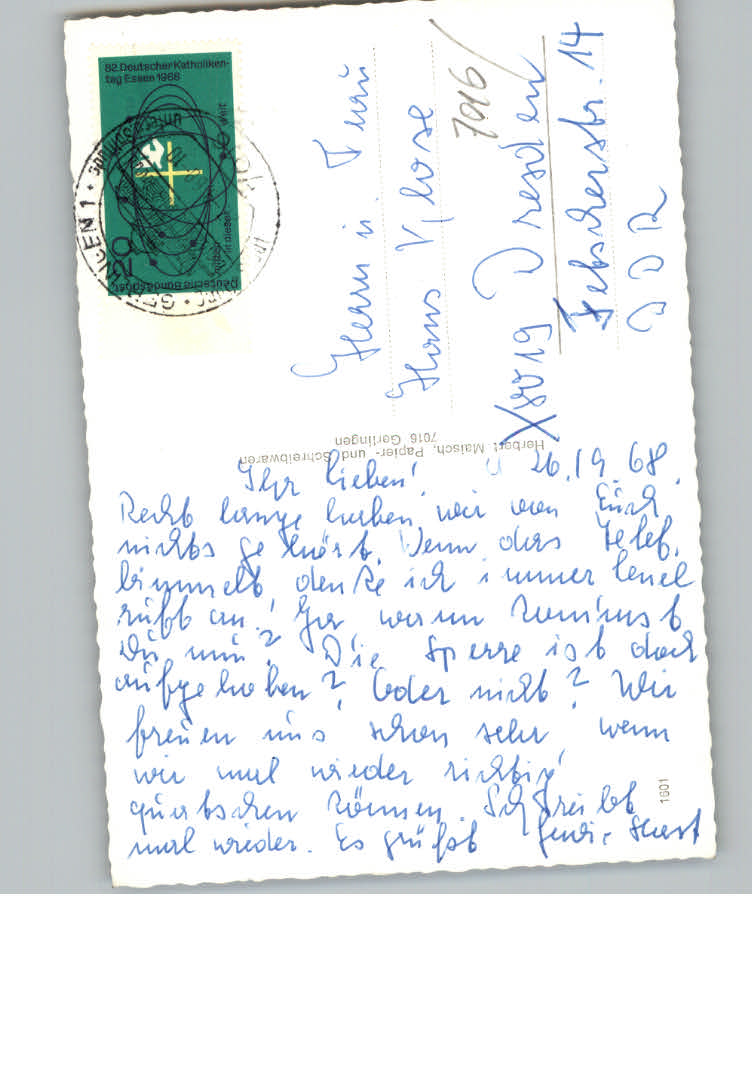 82. Deutscher Katholiken-
tag Essen 1968
mitten in dieser Welt
Deutsche Bundespost
20
GERLINGEN 1
7016
Herrn u. Frau
Hans Klose
X8019 Dresden
Fetscherstr. 14
DDR
Herbert Maisch, Papier- und Schreibwaren
7016 Gerlingen
1601
Ihr Lieben! 26.9.68.
Recht lange haben wir von Euch
nichts gehört. Wenn das Telef.
bimmelt, denke ich immer
ruft an! Ja wann kommst
Du nun? Die Sperre ist doch
aufgehoben? Oder nicht? Wir
freuen uns schon sehr, wenn
wir mal wieder richtig
quatschen können. Schreibt
mal wieder. Es grüßt